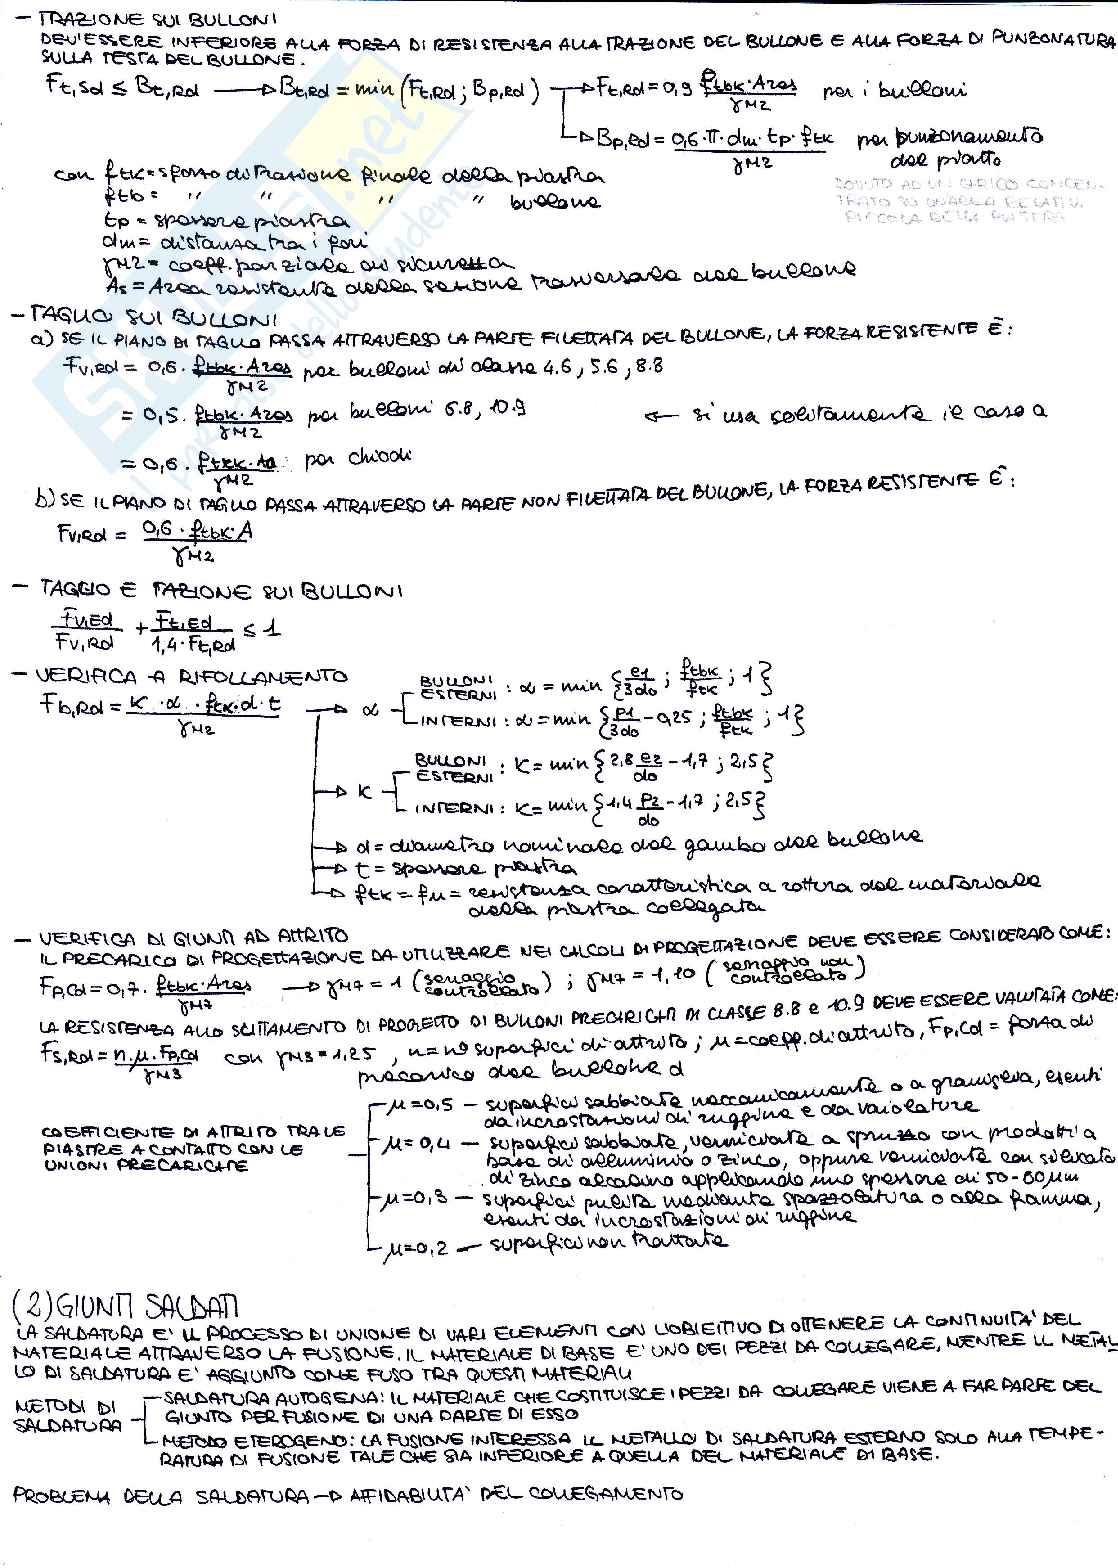 - TRAZIONE SUI BULLONI
DEV'ESSERE INFERIORE ALLA FORZA DI RESISTENZA ALLA TRAZIONE DEL BULLONE E ALLA FORZA DI PUNZONATURA
SULLA TESTA DEL BULLONE.
Ft,Sd ≤ Bt,Rd → Bt,Rd = min (Ft,Rd ; Bp,Rd) → Ft,Rd = 0,9 ftbk · Ares / γM2 per i bulloni
→ Bp,Rd = 0,6 · π · dm · tp · ftk / γM2 per punzonamento
del piatto
DOVUTO AD UN CARICO CONCEN-
TRATO SU UN'AREA RELATIV.
PICCOLA DELLA PIASTRA
con ftk = sforzo di trazione finale della piastra
ftb = " " " " bullone
tp = spessore piastra
dm = distanza tra i fori
γM2 = coeff. parziale di sicurezza
As = Area resistente della sezione trasversale del bullone
- TAGLIO SUI BULLONI
a) SE IL PIANO DI TAGLIO PASSA ATTRAVERSO LA PARTE FILETTATA DEL BULLONE, LA FORZA RESISTENTE È:
Fv,Rd = 0,6 · ftbk · Ares / γM2 per bulloni di classe 4.6, 5.6, 8.8
= 0,5 · ftbk · Ares / γM2 per bulloni 6.8, 10.9 ← si usa solitamente il caso a
= 0,6 · ftrk · A0 / γM2 per chiodi
b) SE IL PIANO DI TAGLIO PASSA ATTRAVERSO LA PARTE NON FILETTATA DEL BULLONE, LA FORZA RESISTENTE È:
Fv,Rd = 0,6 · ftbk · A / γM2
- TAGGIO E TAZIONE SUI BULLONI
Fv,Ed / Fv,Rd + Ft,Ed / 1,4 · Ft,Rd ≤ 1
- VERIFICA A RIFOLLAMENTO
Fb,Rd = K · α · ftk · d · t / γM2
→ α BULLONI ESTERNI : α = min { e1 / 3d0 ; ftbk / ftk ; 1 }
INTERNI : α = min { p1 / 3d0 - 0,25 ; ftbk / ftk ; 1 }
→ K BULLONI ESTERNI : K = min { 2,8 e2 / d0 - 1,7 ; 2,5 }
INTERNI : K = min { 1,4 p2 / d0 - 1,7 ; 2,5 }
→ d = diametro nominale del gambo del bullone
→ t = spessore piastra
→ ftk = fu = resistenza caratteristica a rottura del materiale
della piastra collegata
- VERIFICA DI GIUNTI AD ATTRITO
IL PRECARICO DI PROGETTAZIONE DA UTILIZZARE NEI CALCOLI DI PROGETTAZIONE DEVE ESSERE CONSIDERATO COME:
Fp,Cd = 0,7 · ftbk · Ares / γM7 → γM7 = 1 (serraggio controllato) ; γM7 = 1,10 (serraggio non controllato)
LA RESISTENZA ALLO SCITTAMENTO DI PROGETTO DI BULLONI PRECARICATI DI CLASSE 8.8 e 10.9 DEVE ESSERE VALUTATA COME:
Fs,Rd = n · μ · Fp,Cd / γM3 con γM3 = 1,25 , n = n° superfici di attrito ; μ = coeff. di attrito, Fp,Cd = forza di
precarico del bullone d
COEFFICIENTE DI ATTRITO TRA LE
PIASTRE A CONTATTO CON LE
UNIONI PRECARICHE
μ=0,5 - superfici sabbiate meccanicamente o a graniglia, esenti
da incrostazioni di ruggine e da vaiolature
μ=0,4 - superfici sabbiate, verniciate a spruzzo con prodotti a
base di alluminio o zinco, oppure verniciate con silicato
di zinco alcalino applicando uno spessore di 50-80 μm
μ=0,3 - superfici pulite mediante spazzolatura o alla fiamma,
esenti da incrostazioni di ruggine
μ=0,2 - superfici non trattate
(2) GIUNTI SALDATI
LA SALDATURA E' IL PROCESSO DI UNIONE DI VARI ELEMENTI CON L'OBIETTIVO DI OTTENERE LA CONTINUITA' DEL
MATERIALE ATTRAVERSO LA FUSIONE. IL MATERIALE DI BASE E' UNO DEI PEZZI DA COLLEGARE, MENTRE IL METAL-
LO DI SALDATURA E' AGGIUNTO COME FUSO TRA QUESTI MATERIALI
METODI DI
SALDATURA
SALDATURA AUTOGENA: IL MATERIALE CHE COSTITUISCE I PEZZI DA COLLEGARE VIENE A FAR PARTE DEL
GIUNTO PER FUSIONE DI UNA PARTE DI ESSO
METODO ETEROGENO: LA FUSIONE INTERESSA IL METALLO DI SALDATURA ESTERNO SOLO ALLA TEMPE-
RATURA DI FUSIONE TALE CHE SIA INFERIORE A QUELLA DEL MATERIALE DI BASE.
PROBLEMA DELLA SALDATURA → AFFIDABILITA' DEL COLLEGAMENTO